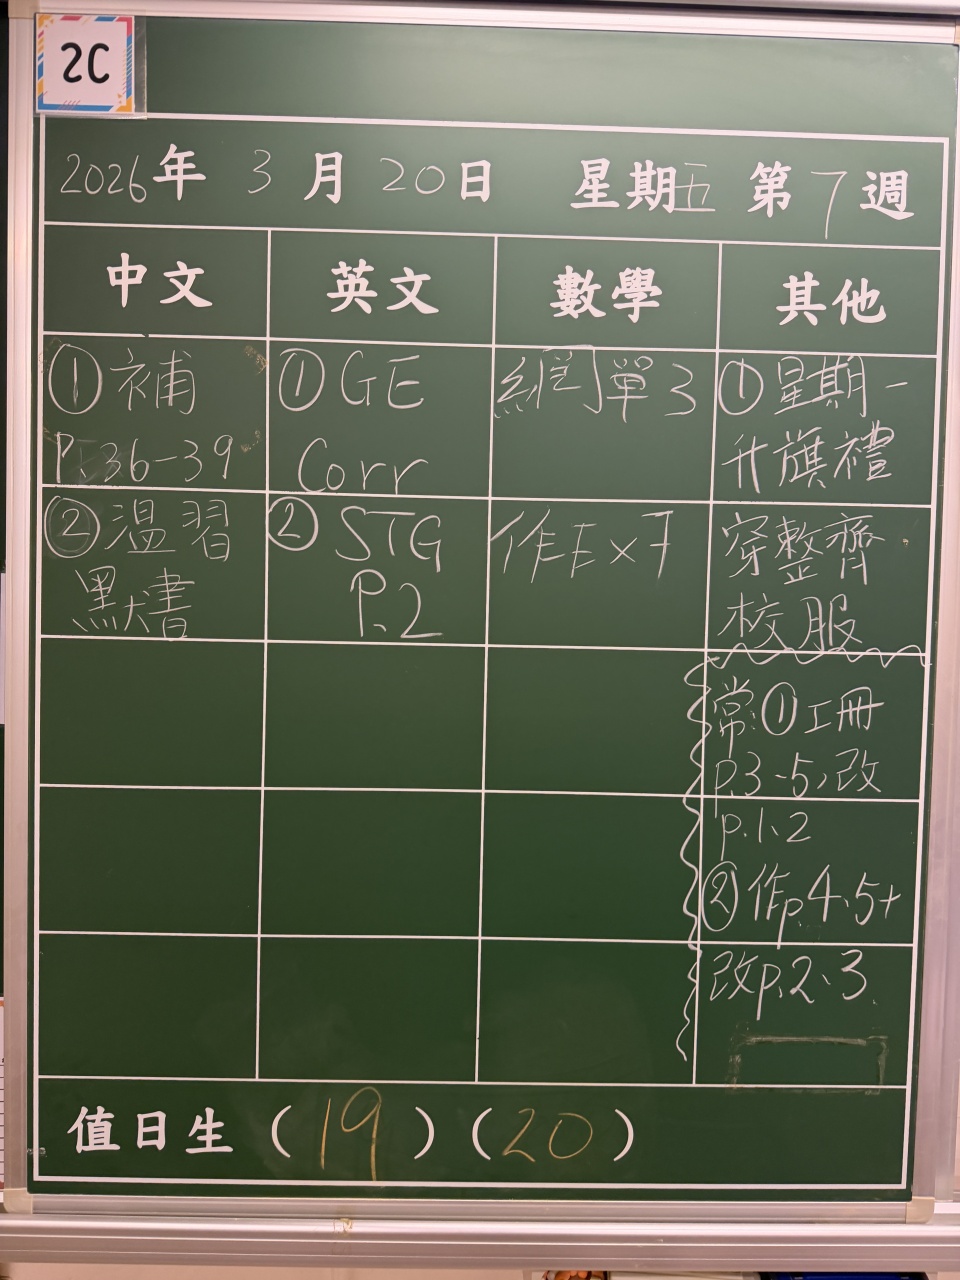 2C
2026年 3月 20日 星期五 第7週
中文
①補
P.36-39
②溫習
默書
英文
①GE
Corr
②STG
P.2
數學
網單3
作E×F
其他
①星期一
升旗禮
穿整齊
校服
常:①工冊
p.3-5,改
p.1、2
②作p.4、5+
改p.2、3.
值日生(19)(20)